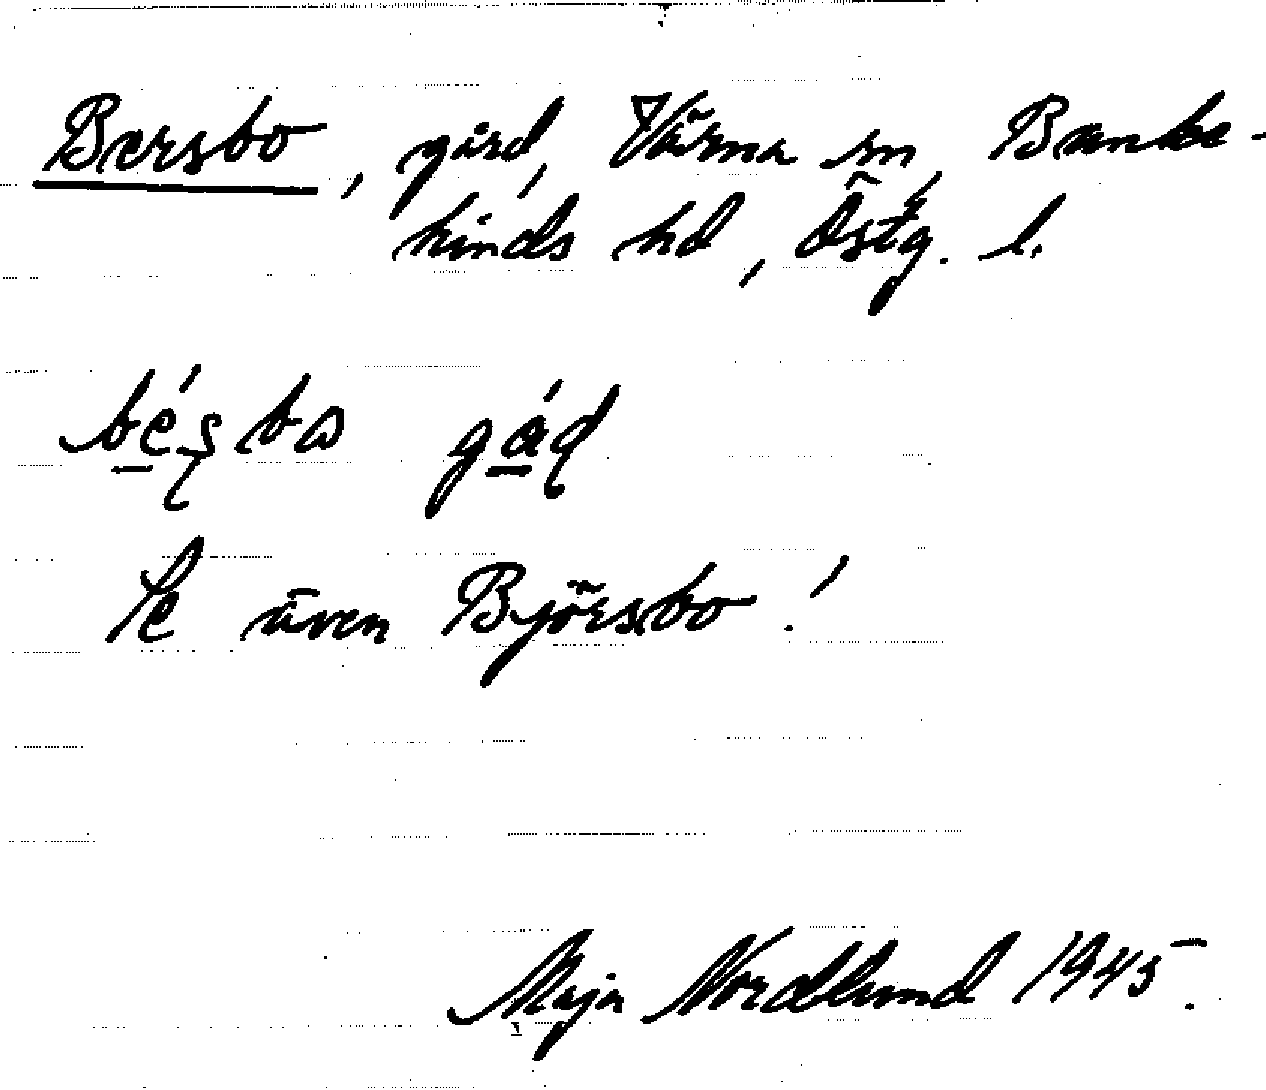 Bersbo, gård, Värna sn, Banke-
kinds hd, Östg. l.
bé̲ʂbω gá̲ɖ
Se även Björsbo!
Maja Nordlund 1945.